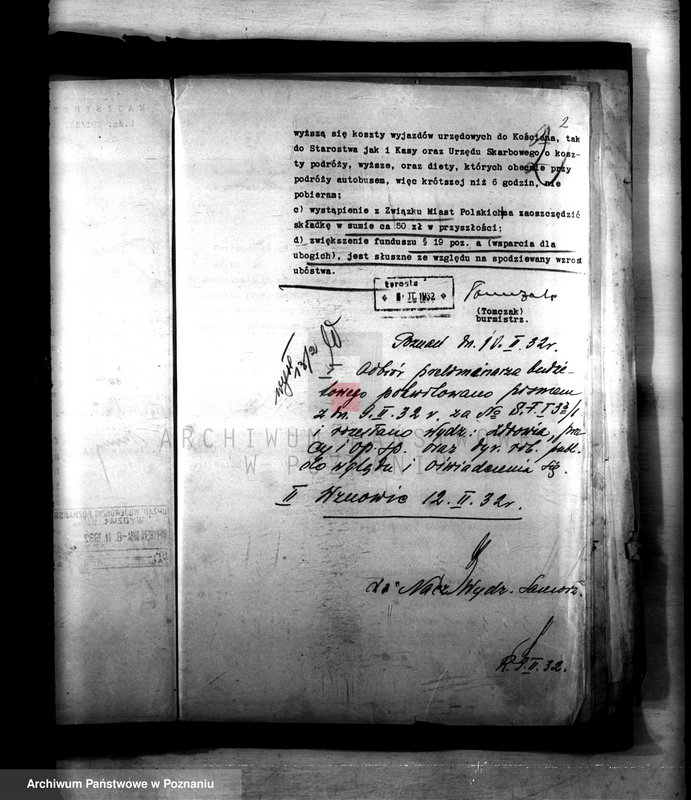 2
wyższą się koszty wyjazdów urzędowych do Kościana, tak
do Starostwa jak i Kasy oraz Urzędu Skarbowego o kosz-
ty podróży, wyższe, oraz diety, których obecnie przy
podróży autobusem, więc krótszej niż 6 godzin, nie
pobieram;
c) wystąpienie z Związku Miast Polskich ma zaoszczędzić
składkę w sumie ca 50 zł w przyszłości;
d) zwiększenie funduszu § 19 poz. a (wsparcia dla
ubogich), jest słuszne ze względu na spodziewany wzrost
ubóstwa.
II 1932
(Tomczak)
burmistrz.
Poznań dn. 10.II.32r.
13/2
I Odbiór preliminarza budże-
towego pokwitowano pismem
z dn. 9.II.32 r. za №
i rozesłano wydz. zdrowia, pra-
cy i op. sp. oraz dyr. rob. publ.
do wglądu i oświadczenia się.
II Wznowić 12.II.32r.
Nacz. Wydz. Samorz.
9.II.32.
ARCHIWUM PAŃSTWOWE
W POZNANIU
MAGISTRAT
URZĄD WOJEWÓDZKI POZNAŃSKI
WYDZIAŁ
Archiwum Państwowe w Poznaniu